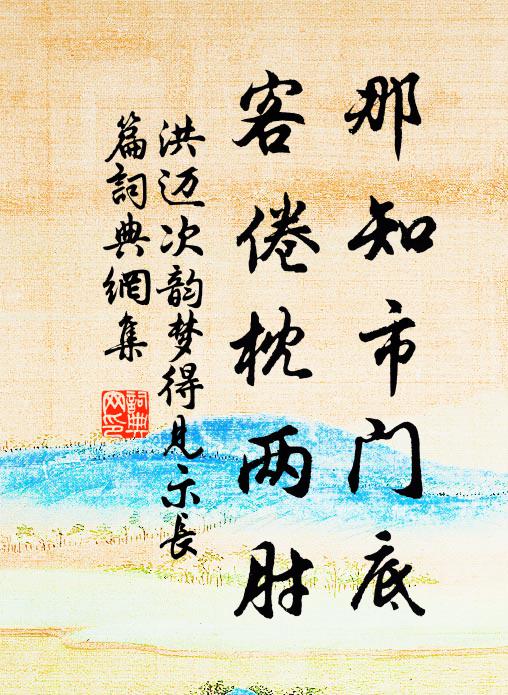 那知市门底
客倦枕两肘
洪迈次韵梦得见示长
篇詞典網集
詞典
网印